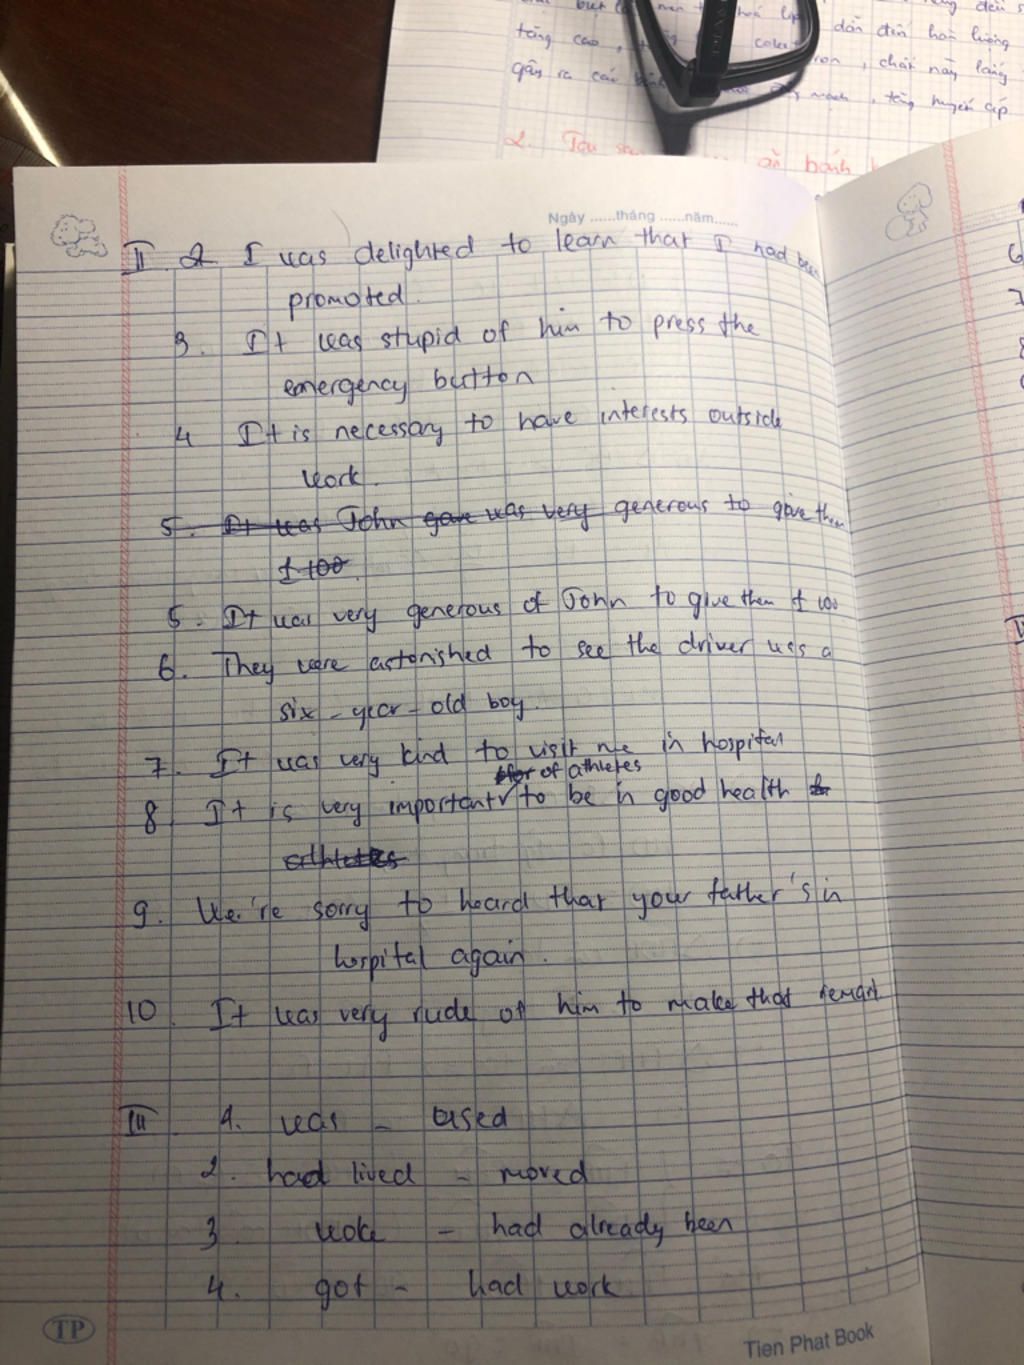 tăng cao
dẫn đến
gây ra các
, chất này lắng
mạch , tăng huyết áp
2.
ăn bánh
Ngày ......tháng ......năm......
II 2 I was delighted to learn that I had been
promoted.
3. It was stupid of him to press the
emergency button
4 It is necessary to have interests outside
work.
5. It was John gave was very generous to give them
£100.
5. It was very generous of John to give them £ 100
6. They were astonished to see the driver was a
six-year-old boy.
7. It was very kind to visit me in hospital
for of athletes
8 It is very important to be in good health for
athletes
9. We're sorry to heard that your father's in
hospital again.
10. It was very rude of him to make that remark
III 1. was - used
2. had lived - moved
3 woke - had already been
4. got - had work
TP
Tien Phat Book